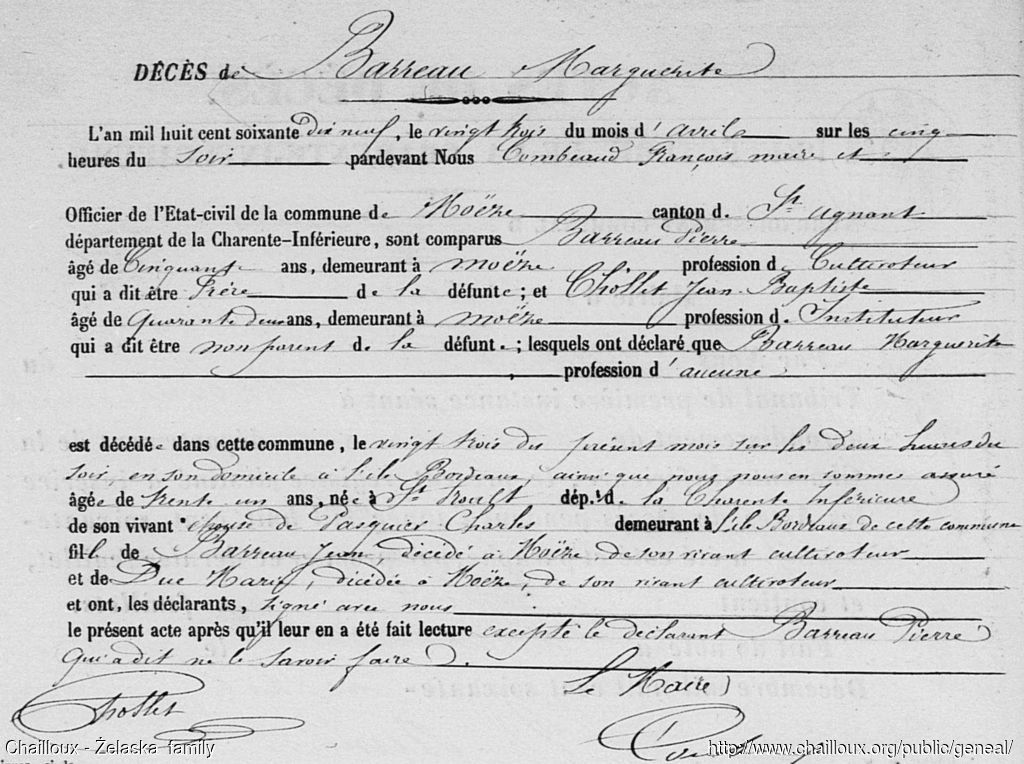 DÉCÈS de Barreau Marguerite
L'an mil huit cent soixante dix neuf, le vingt trois du mois d'avril sur les cinq
heures du soir pardevant Nous Combeaud François maire et
Officier de l'Etat-civil de la commune de Moëze canton d. St. Agnant
département de la Charente-Inférieure, sont comparus Barreau Pierre
âgé de Cinquante ans, demeurant à Moëze profession d. Cultivateur
qui a dit être Frère de la défunte; et Chollet Jean-Baptiste
âgé de Quarante deux ans, demeurant à moëze profession d. Instituteur
qui a dit être non parent de la défunte; lesquels ont déclaré que Barreau Marguerite
, profession d'aucune
est décédée dans cette commune, le vingt trois du présent mois sur les deux heures du
soir, en son domicile à l'ile Bordeaux, ainsi que nous nous en sommes assuré
âgée de trente un ans, née à St. Froult dép.t d. la Charente Inférieure
de son vivant épouse de Pasquier Charles demeurant à l'ile Bordeaux de cette commune
fille de Barreau Jean décédé à Moëze de son vivant cultivateur
et de Duc Marie, décédée à Moëze, de son vivant cultivateur
et ont, les déclarants, signé avec nous
le présent acte après qu'il leur en a été fait lecture excepté le déclarant Barreau Pierre
Qui a dit ne le savoir faire.
Le Maire
Chollet
Chailloux - Żelaska family
http://www.chailloux.org/public/geneal/